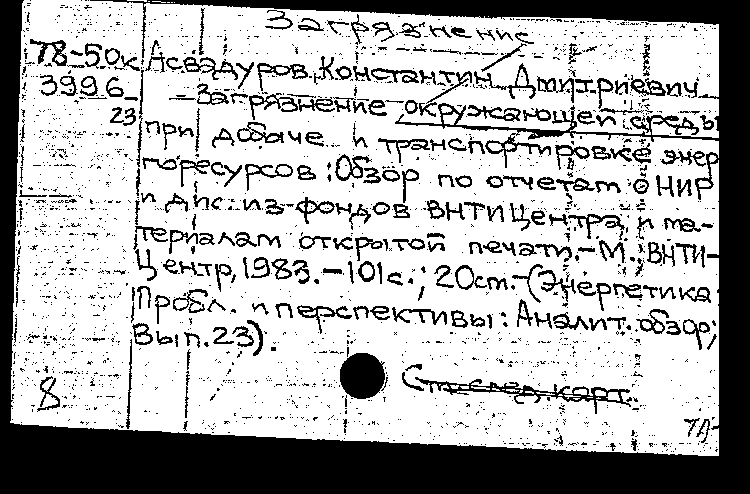 Загрязнение
78-50к Асвадуров, Константин Дмитриевич
3996 Загрязнение окружающей среды
23 при добыче и транспортировке энер
горесурсов: Обзор по отчетам о НИР
и дис. из фондов ВНТИЦентра и ма-
териалам открытой печати.-М.: ВНТИ-
Центр, 1983.-101с.; 20cm.-(Энергетика:
Пробл. и перспективы: Аналит. обзор;
Вып.23).
8 См. след. карт.